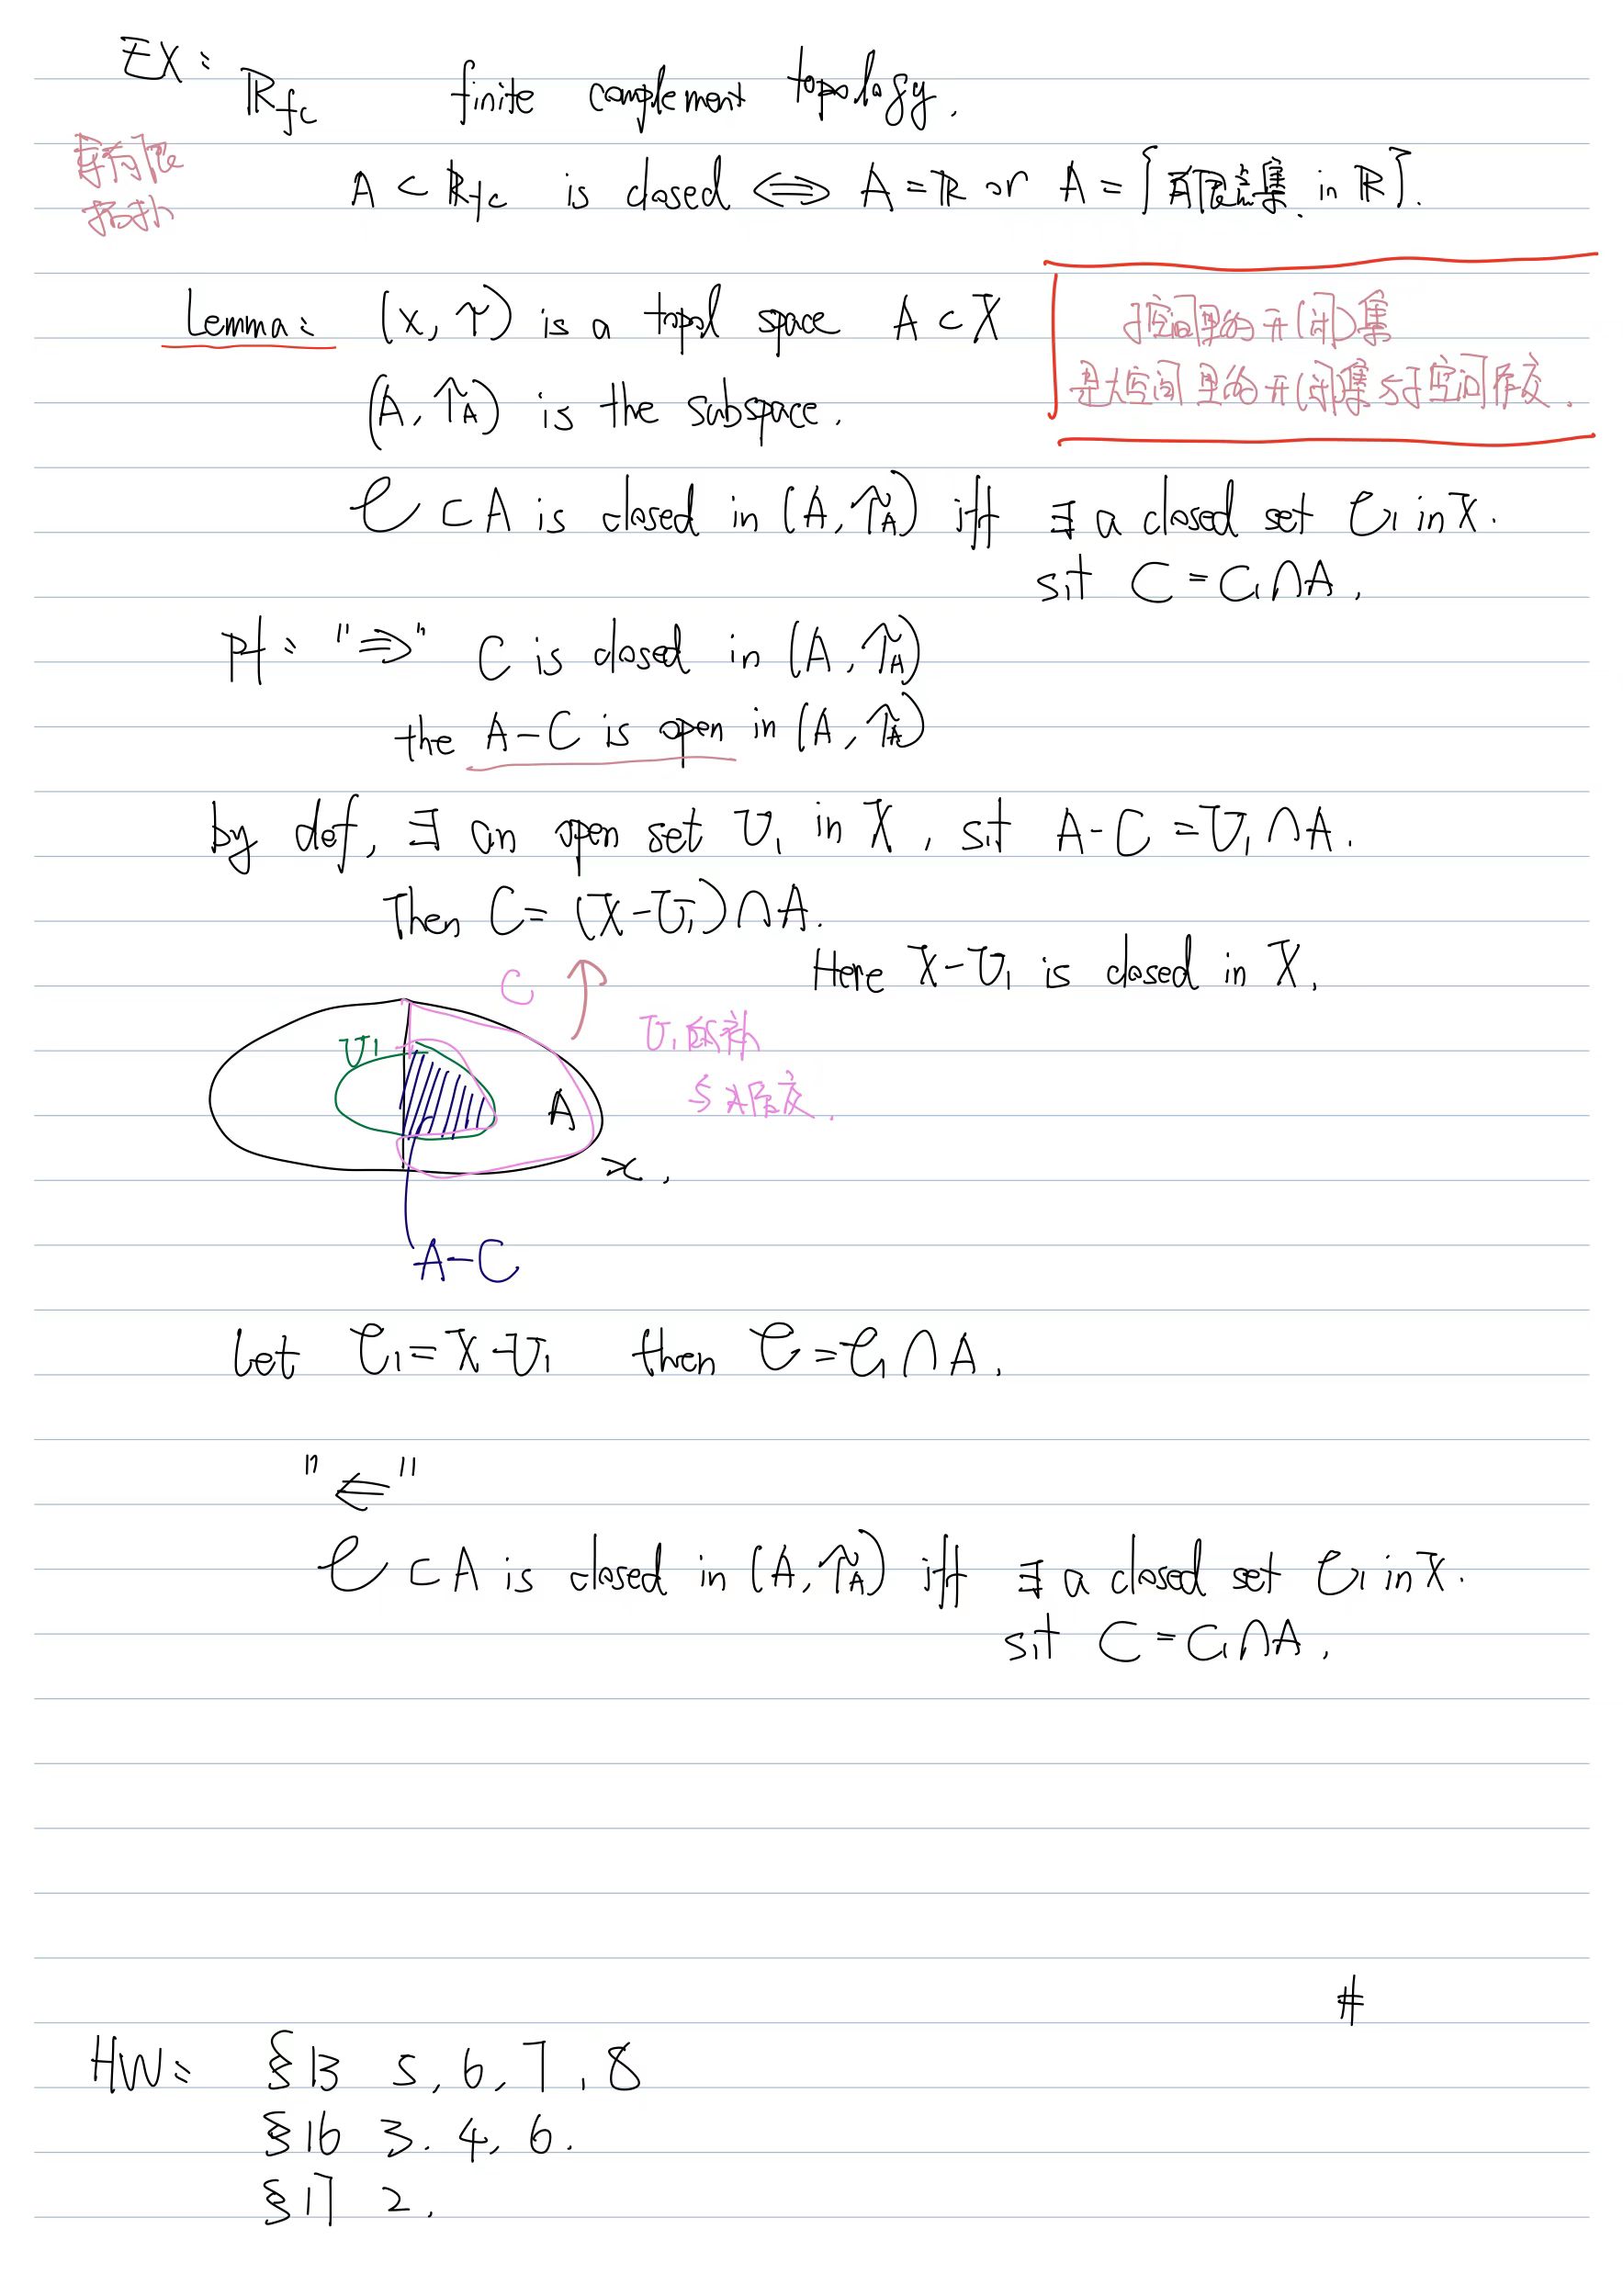 EX:
ℝfc finite complement topology.
余有限
拓扑
A ⊂ ℝfc is closed ⟺ A = ℝ or A = {有限点集 in ℝ}.
Lemma: (X, τ) is a topol space A ⊂ X
(A, τA) is the subspace.
子空间里的开(闭)集
是大空间里的开(闭)集与子空间作交.
C ⊂ A is closed in (A, τA) iff ∃ a closed set C₁ in X.
s.t C = C₁∩A.
Pf: "⇒" C is closed in (A, τA)
the A-C is open in (A, τA)
by def, ∃ an open set U₁ in X, s.t A-C = U₁∩A.
Then C = (X-U₁)∩A.
Here X-U₁ is closed in X.
C
U₁的补
与A作交.
U₁
A
X.
A-C
Let C₁ = X-U₁ then C = C₁∩A.
"⇐"
C ⊂ A is closed in (A, τA) iff ∃ a closed set C₁ in X.
s.t C = C₁∩A.
#
HW: §13 5, 6, 7, 8
§16 3. 4, 6.
§17 2.